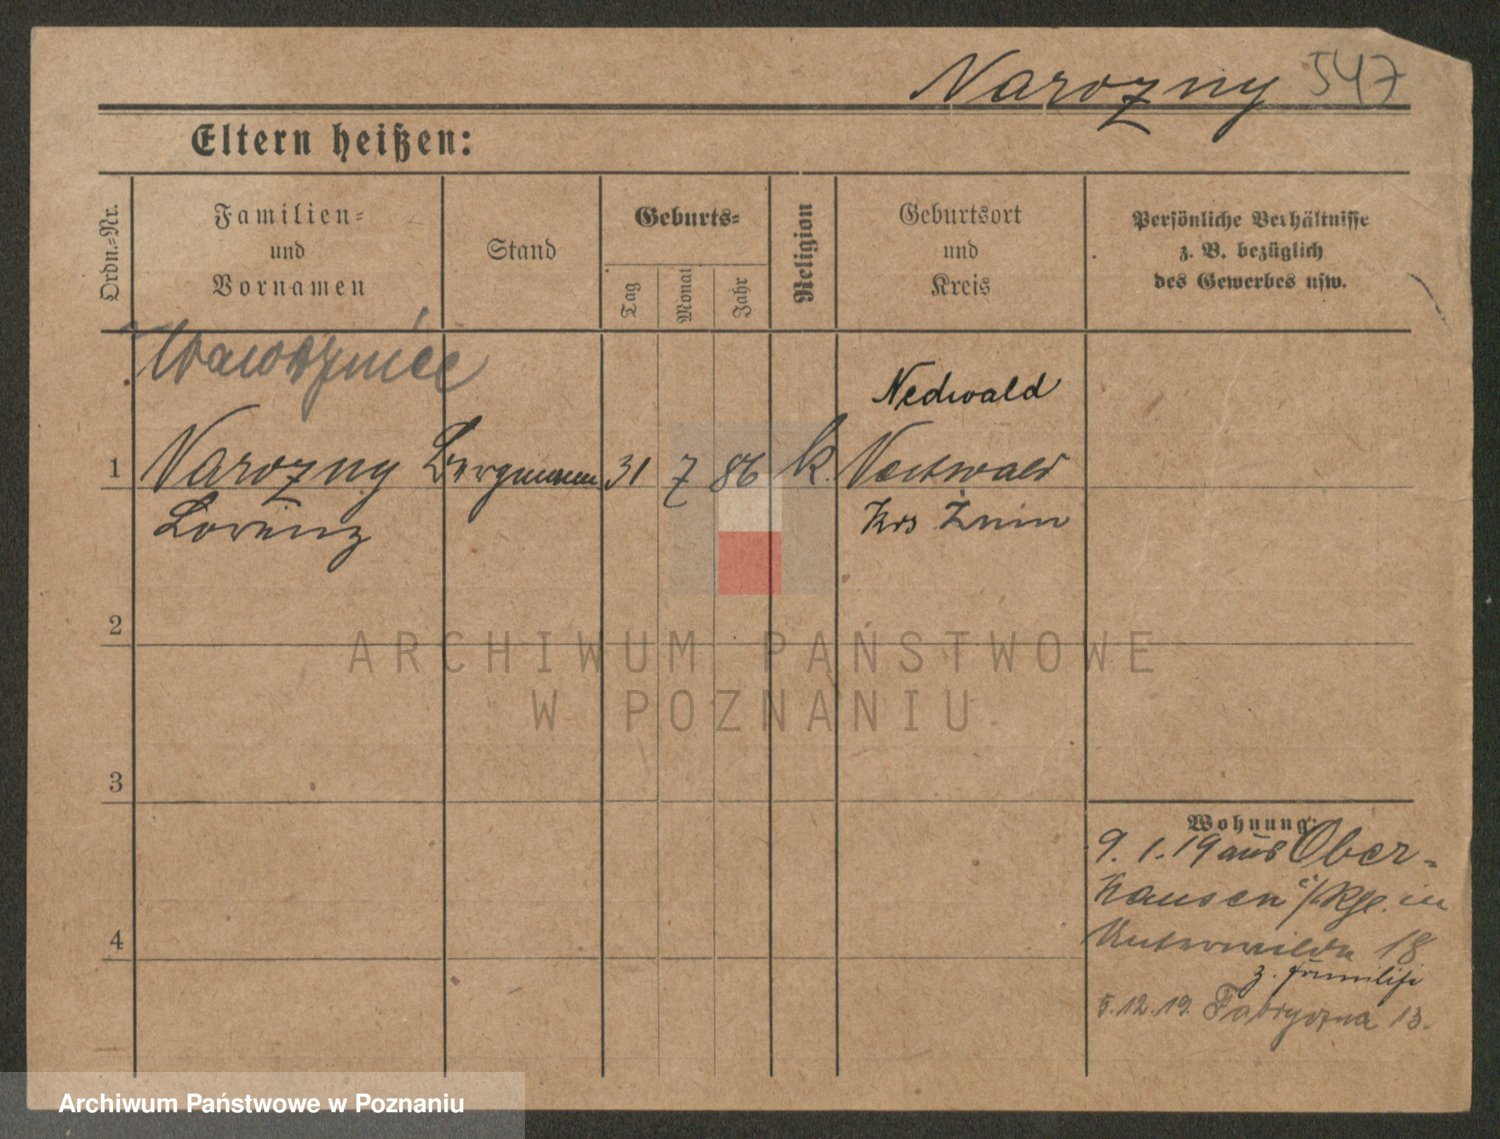 Narozny 547
Eltern heißen:
Ordn.-Nr.
Familien-
und
Vornamen
Stand
Geburts-
Tag
Monat
Jahr
Religion
Geburtsort
und
Kreis
Persönliche Verhältnisse
z. B. bezüglich
des Gewerbes usw.
Nedwald
1 Narozny Bergmann 31 7 86 k.
Lorenz
Krs Żnin
2
3
4
Wohnung:
9.1.19 aus Ober-
hausen in
Unterwilda 18
z. Familie
5.12.19. Fabryczna 13.
ARCHIWUM PAŃSTWOWE
W POZNANIU
Archiwum Państwowe w Poznaniu